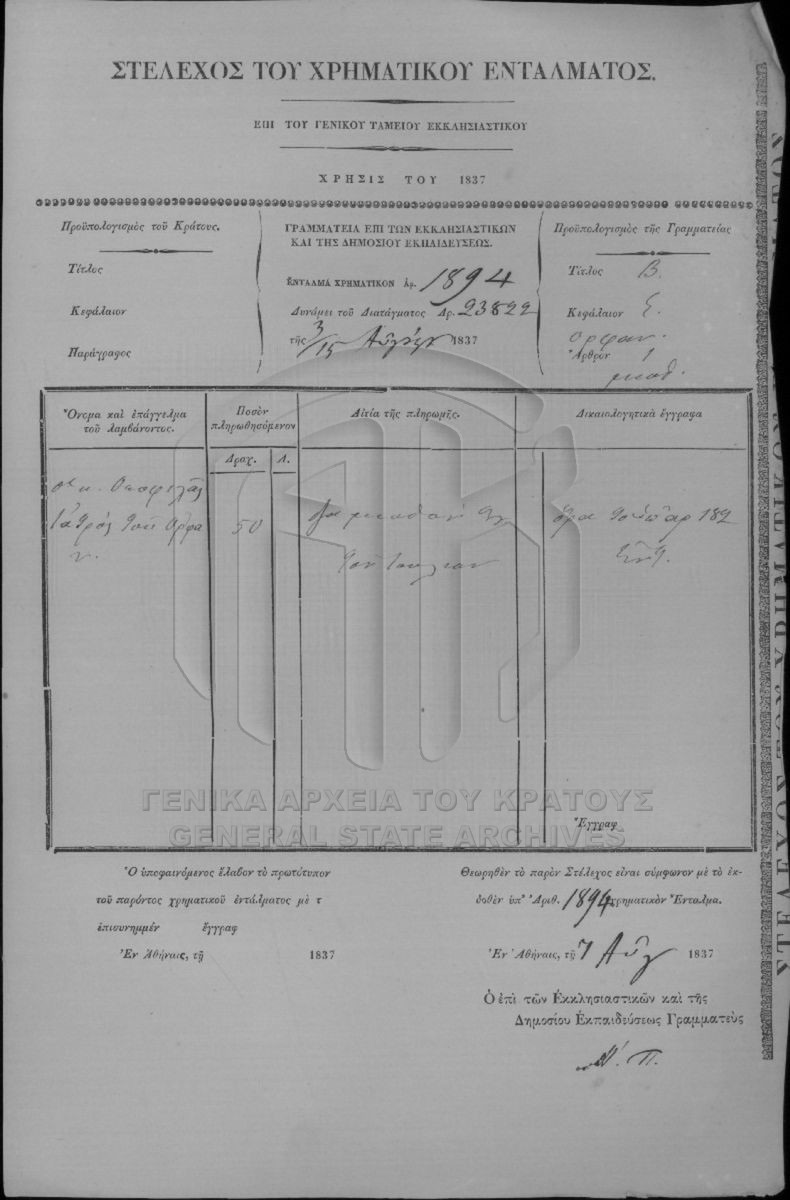 ΣΤΕΛΕΧΟΣ ΤΟΥ ΧΡΗΜΑΤΙΚΟΥ ΕΝΤΑΛΜΑΤΟΣ.
ΕΠΙ ΤΟΥ ΓΕΝΙΚΟΥ ΤΑΜΕΙΟΥ ΕΚΚΛΗΣΙΑΣΤΙΚΟΥ
ΧΡΗΣΙΣ ΤΟΥ 1837
Προϋπολογισμὸς τοῦ Κράτους.
Τίτλος
Κεφάλαιον
Παράγραφος
ΓΡΑΜΜΑΤΕΙΑ ΕΠΙ ΤΩΝ ΕΚΚΛΗΣΙΑΣΤΙΚΩΝ
ΚΑΙ ΤΗΣ ΔΗΜΟΣΙΟΥ ΕΚΠΑΙΔΕΥΣΕΩΣ.
ΕΝΤΑΛΜΑ ΧΡΗΜΑΤΙΚΟΝ Ἀρ. 1894
Δυνάμει τοῦ Διατάγματος Ἀρ. 23822
τῆς 3/15 1837
Προϋπολογισμὸς τῆς Γραμματείας
Τίτλος Β.
Κεφάλαιον Ε.
ορφαν.
Ἄρθρον 1
μισθ.
Ὄνομα καὶ ἐπάγγελμα
τοῦ λαμβάνοντος.
Ποσὸν
πληρωθησόμενον
Δραχ. Λ.
Αἰτία τῆς πληρωμῆς.
Δικαιολογητικὰ ἔγγραφα
50
Ἔγγραφ
ΓΕΝΙΚΑ ΑΡΧΕΙΑ ΤΟΥ ΚΡΑΤΟΥΣ
GENERAL STATE ARCHIVES
Ὁ ὑποφαινόμενος ἔλαβον τὸ πρωτότυπον
τοῦ παρόντος χρηματικοῦ ἐντάλματος μὲ τ
ἐπισυνημμέν ἔγγραφ
Ἐν Ἀθήναις, τῇ 1837
Θεωρηθὲν τὸ παρὸν Στέλεχος εἶναι σύμφωνον μὲ τὸ ἐκ-
δοθὲν ὑπ' Ἀριθ. 1894 χρηματικὸν Ἔνταλμα.
Ἐν Ἀθήναις, τῇ 7 Αὐγ 1837
Ὁ ἐπὶ τῶν Ἐκκλησιαστικῶν καὶ τῆς
Δημοσίου Ἐκπαιδεύσεως Γραμματεὺς
Π.